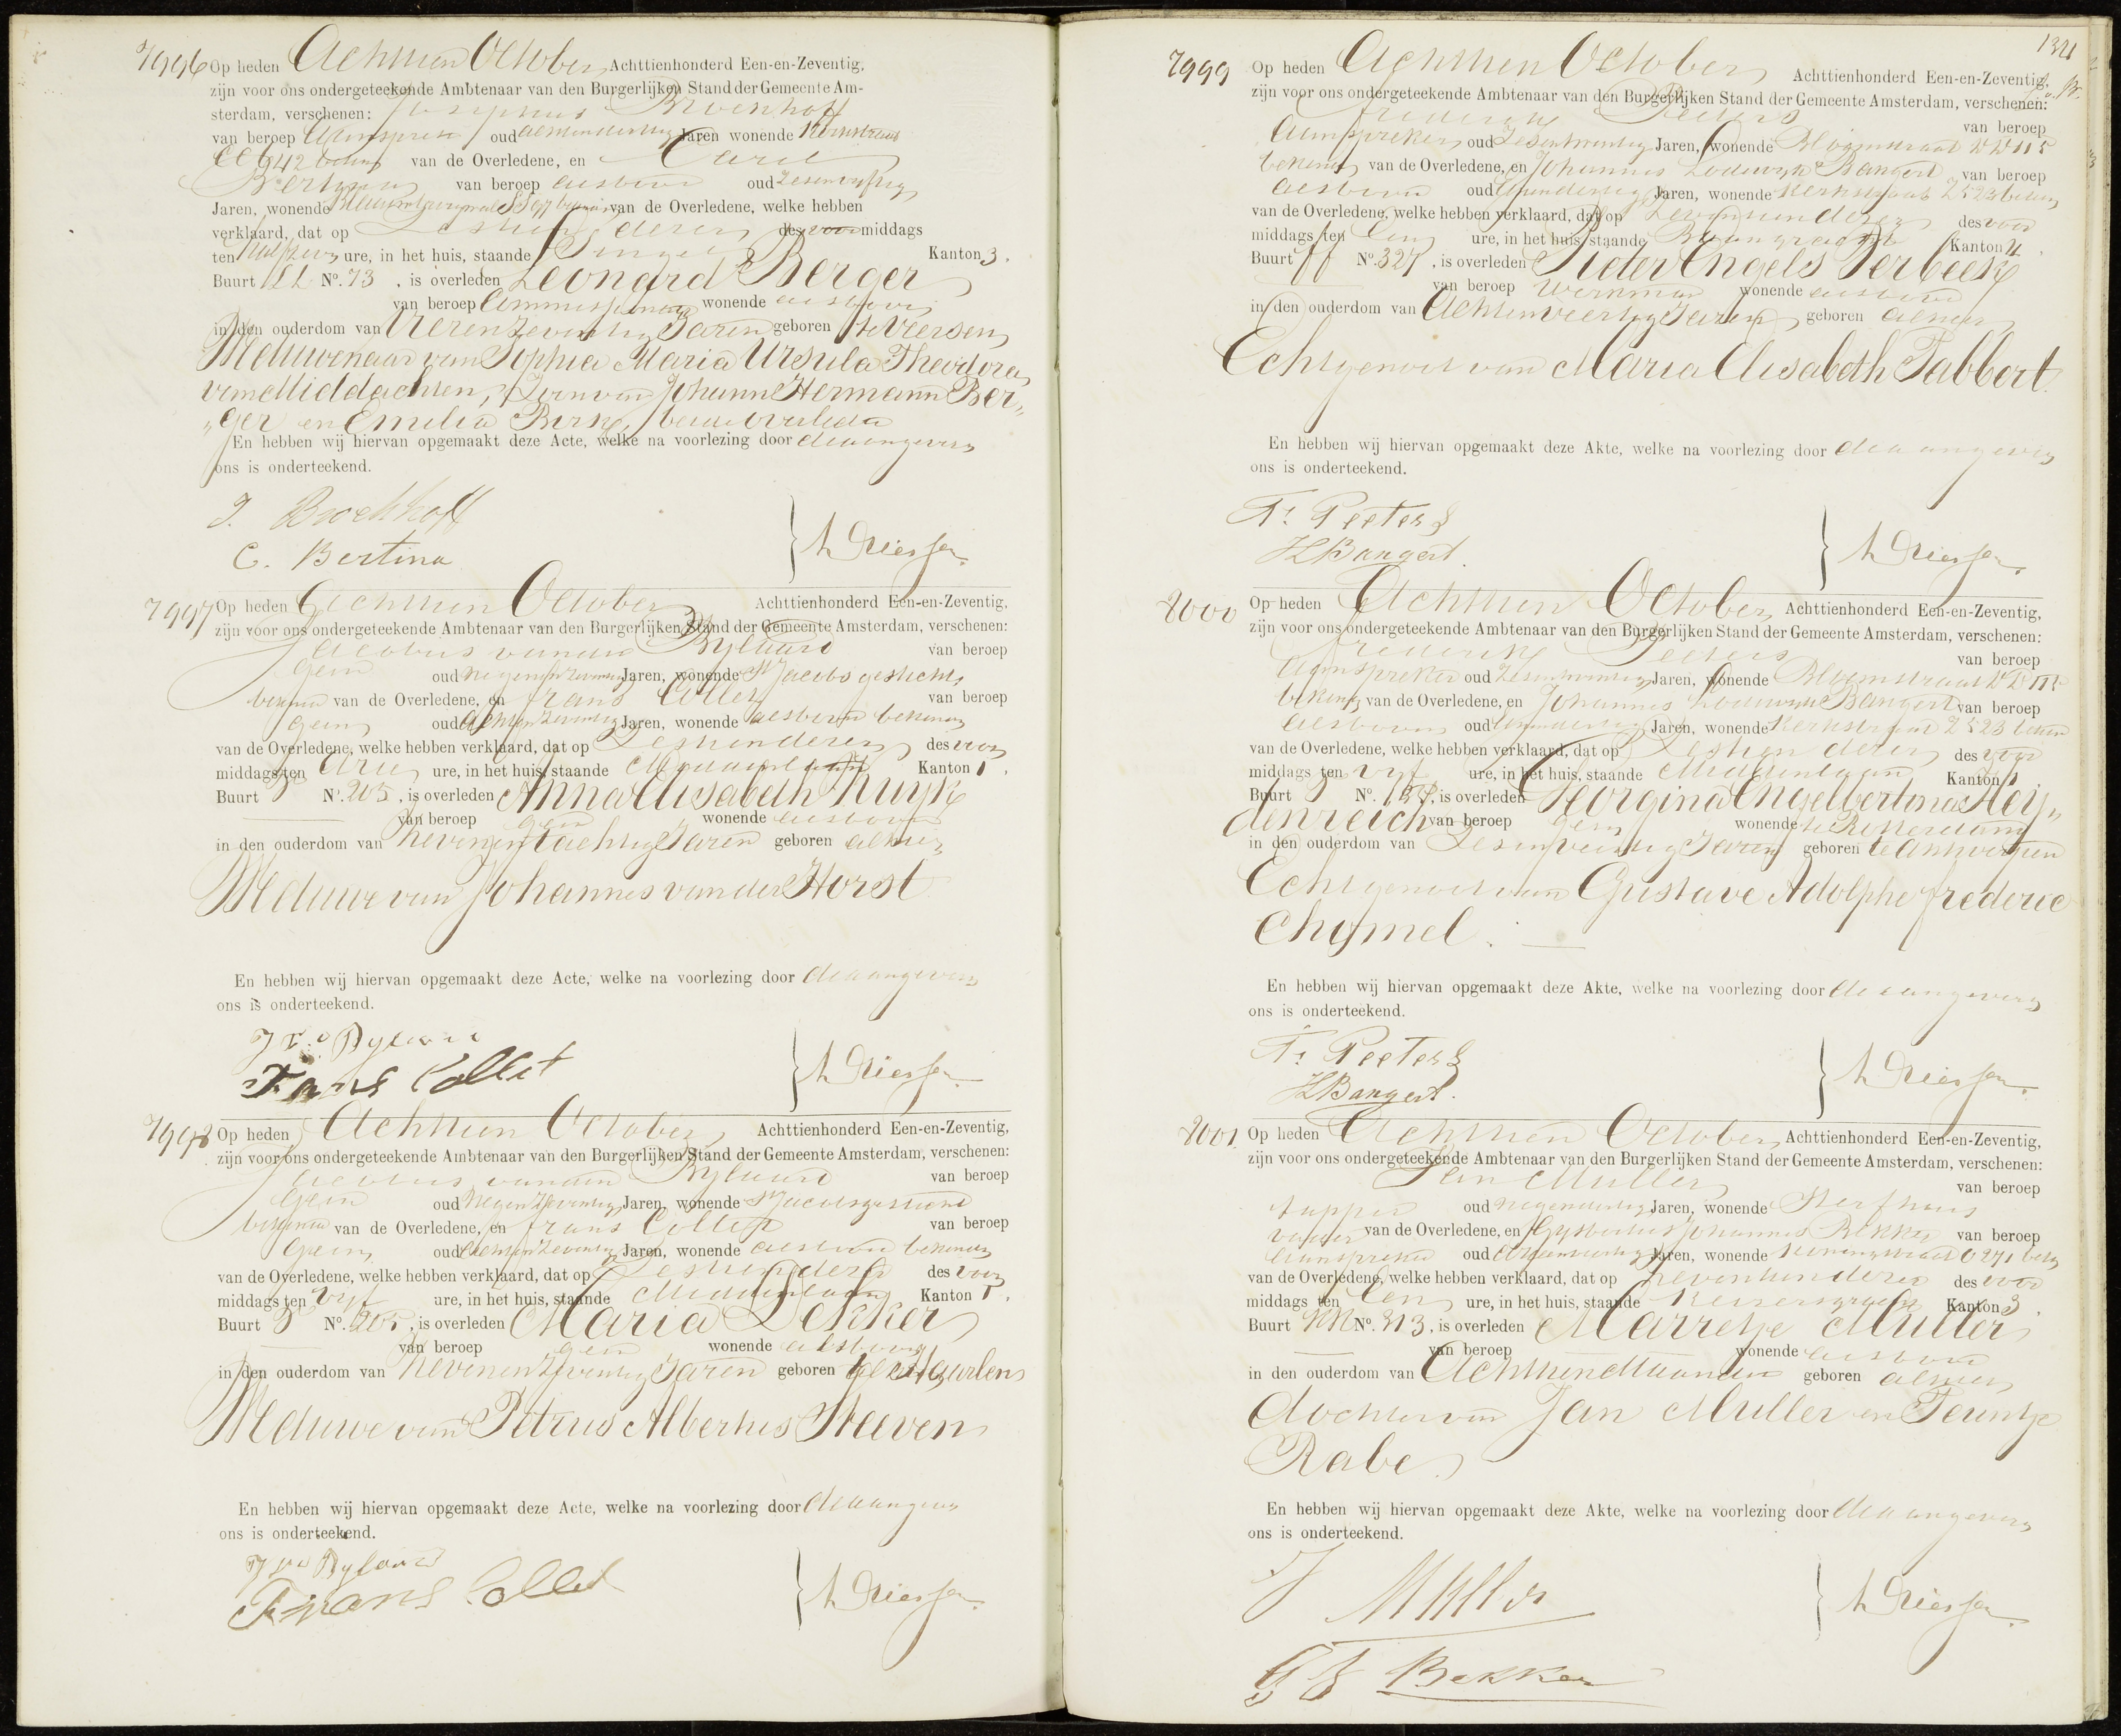 7996 Op heden Achttien October Achttienhonderd Een-en-Zeventig,
zijn voor ons ondergeteekende Ambtenaar van den Burgerlijken Stand der Gemeente Am-
sterdam, verschenen: Josephus Broenhoff
van beroep Aanspreker oud Jaren wonende Kerkstraat
942 van de Overledene, en Carel
Bertina van beroep aesboven oud Zesenvyftig
Jaren, wonende van de Overledene, welke hebben
verklaard, dat op Zestien dezer des voormiddags
ten half zeven ure, in het huis, staande Singel Kanton 3.
Buurt LL No. 73, is overleden Leonard Berger
van beroep Commissionair wonende aesboven
in den ouderdom van Vierenzeventig Jaren geboren te Viersen
Weduwenaar van Sophia Maria Ursula Theodora
van Middachten, Zoon van Johann Hermann Ber„
„ger en Emilia Birk, beide overleden
En hebben wij hiervan opgemaakt deze Acte, welke na voorlezing door de aangevers
ons is onderteekend.
J. Broekhoff
C. Bertina
A Driessen.
7997 Op heden Achttien October Achttienhonderd Een-en-Zeventig,
zijn voor ons ondergeteekende Ambtenaar van den Burgerlijken Stand der Gemeente Amsterdam, verschenen:
Jacobus van den Bylaard van beroep
geen oud Negenenzeventig Jaren, wonende St Jacobs gesticht
bekenden van de Overledene, en Frans Collet van beroep
geen oud Achtenzeventig Jaren, wonende aesboven bekenden
van de Overledene, welke hebben verklaard, dat op Zestien dezer des voor
middags ten drie ure, in het huis, staande Middenlaan Kanton 1.
Buurt No. 205, is overleden Anna Elisabeth Kuyk
van beroep geen wonende aesboven
in den ouderdom van Zevenentachtig Jaren geboren alhier
Weduwe van Johannes van der Horst
En hebben wij hiervan opgemaakt deze Acte, welke na voorlezing door de aangevers
ons is onderteekend.
J vd Bylaard
Frans Collet
A Driessen.
7998 Op heden Achttien October Achttienhonderd Een-en-Zeventig,
zijn voor ons ondergeteekende Ambtenaar van den Burgerlijken Stand der Gemeente Amsterdam, verschenen:
Jacobus van den Bylaard van beroep
geen oud Negenenzeventig Jaren, wonende St Jacobsgesticht
bekenden van de Overledene, en Frans Collet van beroep
geen oud Achtenzeventig Jaren, wonende aesboven bekenden
van de Overledene, welke hebben verklaard, dat op Zestien dezer des voor
middags ten vyf ure, in het huis, staande Middenlaan Kanton 1.
Buurt No. 205, is overleden Maria Dekker
van beroep geen wonende aesboven
in den ouderdom van Zevenenzeventig Jaren geboren te Haarlem
Weduwe van Petrus Albertus Steeven
En hebben wij hiervan opgemaakt deze Acte, welke na voorlezing door de aangevers
ons is onderteekend.
J vd Bylaard
Frans Collet
A Driessen.
134
7999 Op heden Achttien October Achttienhonderd Een-en-Zeventig,
zijn voor ons ondergeteekende Ambtenaar van den Burgerlijken Stand der Gemeente Amsterdam, verschenen:
Frederik Peeters van beroep
Aanspreker oud Zesentwintig Jaren, wonende Bloemstraat WW 115
bekende van de Overledene, en Johannes Lodewyk Bangert van beroep
aesboven oud Jaren, wonende Kerkstraat 2523 bekende
van de Overledene, welke hebben verklaard, dat op Zeventien dezer des voor
middags ten Een ure, in het huis, staande Baangracht Kanton 4.
Buurt ff No. 327, is overleden Pieter Engels Verbeek
van beroep Werkman wonende aesboven
in den ouderdom van Achtenveertig Jaren geboren alhier
Echtgenoot van Maria Elisabeth Tabbert.
En hebben wij hiervan opgemaakt deze Akte, welke na voorlezing door de aangevers
ons is onderteekend.
Fr Peeters
JLBangert.
A Driessen.
8000 Op heden Achttien October Achttienhonderd Een-en-Zeventig,
zijn voor ons ondergeteekende Ambtenaar van den Burgerlijken Stand der Gemeente Amsterdam, verschenen:
Frederik Peeters van beroep
Aanspreker oud Zesentwintig Jaren, wonende Bloemstraat WW 115
bekende van de Overledene, en Johannes Lodewyk Bangert van beroep
aesboven oud Jaren, wonende Kerkstraat 2523 bekende
van de Overledene, welke hebben verklaard, dat op Zestien dezer des voor
middags ten vyf ure, in het huis, staande Middenlaan Kanton 1
Buurt No. 157, is overleden Georgina Engelbertina Heij„
denreich van beroep geen wonende te Rotterdam
in den ouderdom van Zesenveertig Jaren geboren te Antwerpen
Echtgenoot van Gustave Adolphe Frederic
Chymel.
En hebben wij hiervan opgemaakt deze Akte, welke na voorlezing door de aangevers
ons is onderteekend.
Fr Peeters
JLBangert.
A Driessen.
8001. Op heden Achttien October Achttienhonderd Een-en-Zeventig,
zijn voor ons ondergeteekende Ambtenaar van den Burgerlijken Stand der Gemeente Amsterdam, verschenen:
Jan Muller van beroep
tapper oud Negendertig Jaren, wonende Sterfhuis
vader van de Overledene, en Gysbertus Johannes Bekker van beroep
Aanspreker oud Jaren, wonende Koningstraat O 271 bekende
van de Overledene, welke hebben verklaard, dat op Zeventien dezer des voor
middags ten Een ure, in het huis, staande Keizersgracht Kanton 3.
Buurt No. 313, is overleden Marretje Muller
van beroep wonende aesboven
in den ouderdom van Achttien Maanden geboren alhier
dochter van Jan Muller en Teuntje
Rabe.
En hebben wij hiervan opgemaakt deze Akte, welke na voorlezing door de aangevers
ons is onderteekend.
J Muller
G J Bekker
A Driessen.